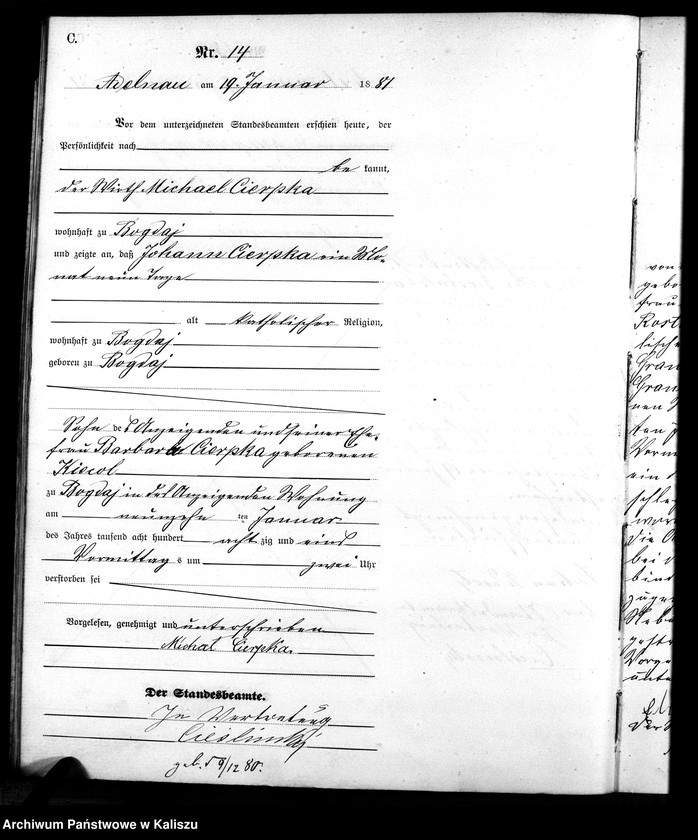 C.
Nr. 14
Adelnau am 19. Januar 1881
Vor dem unterzeichneten Standesbeamten erschien heute, der
Persönlichkeit nach
be kannt,
der Wirth Michael Cierpka
wohnhaft zu Bogdaj
und zeigte an, daß Johann Cierpka ein Mo-
nat neun Tage
alt katholischer Religion,
wohnhaft zu Bogdaj
geboren zu Bogdaj
Sohn des Anzeigenden und seiner Ehe-
frau Barbara Cierpka geborenen
Kierol
zu Bogdaj in des Anzeigenden Wohnung
am neunzehn ten Januar
des Jahres tausend acht hundert acht zig und eins
Vormittag s um zwei Uhr
verstorben sei
Vorgelesen, genehmigt und unterschrieben
Michał Cierpka.
Der Standesbeamte.
In Vertretung
geb. 9/12 80.
von
gebo
frau
Rost
lische
Gran
Gran
nen
ten
Vorm
ein
schle
wor
die A
bei d
bind
zuge
Nebe
gestr
Vorge
unte
der
Archiwum Państwowe w Kaliszu